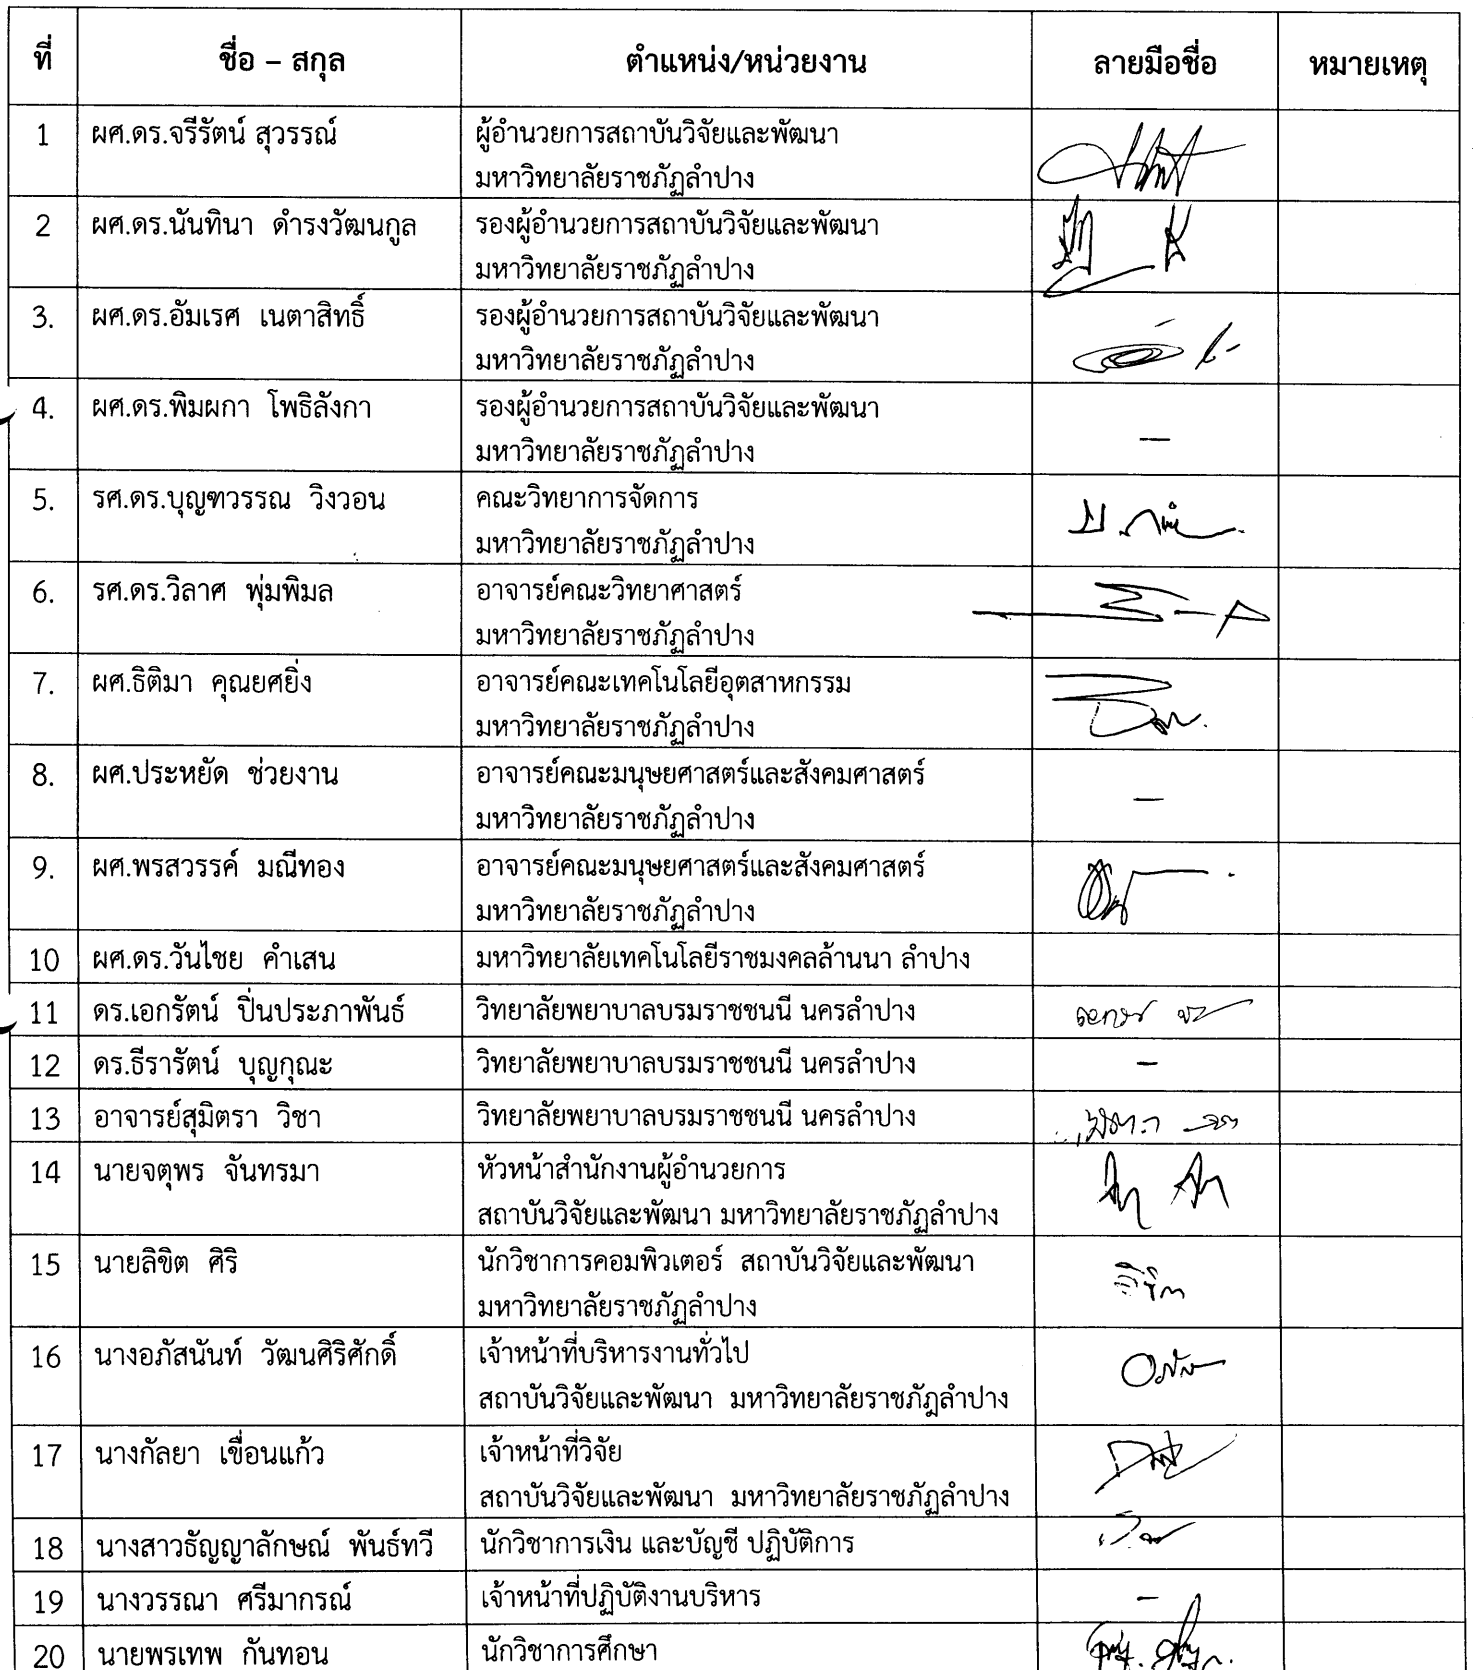 ที่ ชื่อ – สกุล ตำแหน่ง/หน่วยงาน ลายมือชื่อ หมายเหตุ
1 ผศ.ดร.จรีรัตน์ สุวรรณ์ ผู้อำนวยการสถาบันวิจัยและพัฒนา
มหาวิทยาลัยราชภัฏลำปาง
2 ผศ.ดร.นันทินา ดำรงวัฒนกูล รองผู้อำนวยการสถาบันวิจัยและพัฒนา
มหาวิทยาลัยราชภัฏลำปาง
3. ผศ.ดร.อัมเรศ เนตาสิทธิ์ รองผู้อำนวยการสถาบันวิจัยและพัฒนา
มหาวิทยาลัยราชภัฏลำปาง
4. ผศ.ดร.พิมผกา โพธิลังกา รองผู้อำนวยการสถาบันวิจัยและพัฒนา
มหาวิทยาลัยราชภัฏลำปาง –
5. รศ.ดร.บุญฑวรรณ วิงวอน คณะวิทยาการจัดการ
มหาวิทยาลัยราชภัฏลำปาง
6. รศ.ดร.วิลาศ พุ่มพิมล อาจารย์คณะวิทยาศาสตร์
มหาวิทยาลัยราชภัฏลำปาง
7. ผศ.ธิติมา คุณยศยิ่ง อาจารย์คณะเทคโนโลยีอุตสาหกรรม
มหาวิทยาลัยราชภัฏลำปาง
8. ผศ.ประหยัด ช่วยงาน อาจารย์คณะมนุษยศาสตร์และสังคมศาสตร์
มหาวิทยาลัยราชภัฏลำปาง –
9. ผศ.พรสวรรค์ มณีทอง อาจารย์คณะมนุษยศาสตร์และสังคมศาสตร์
มหาวิทยาลัยราชภัฏลำปาง
10 ผศ.ดร.วันไชย คำเสน มหาวิทยาลัยเทคโนโลยีราชมงคลล้านนา ลำปาง
11 ดร.เอกรัตน์ ปิ่นประภาพันธ์ วิทยาลัยพยาบาลบรมราชชนนี นครลำปาง
12 ดร.ธีรารัตน์ บุญกุณะ วิทยาลัยพยาบาลบรมราชชนนี นครลำปาง –
13 อาจารย์สุมิตรา วิชา วิทยาลัยพยาบาลบรมราชชนนี นครลำปาง
14 นายจตุพร จันทรมา หัวหน้าสำนักงานผู้อำนวยการ
สถาบันวิจัยและพัฒนา มหาวิทยาลัยราชภัฏลำปาง
15 นายลิขิต ศิริ นักวิชาการคอมพิวเตอร์ สถาบันวิจัยและพัฒนา
มหาวิทยาลัยราชภัฏลำปาง ลิขิต
16 นางอภัสนันท์ วัฒนศิริศักดิ์ เจ้าหน้าที่บริหารงานทั่วไป
สถาบันวิจัยและพัฒนา มหาวิทยาลัยราชภัฏลำปาง
17 นางกัลยา เขื่อนแก้ว เจ้าหน้าที่วิจัย
สถาบันวิจัยและพัฒนา มหาวิทยาลัยราชภัฏลำปาง
18 นางสาวธัญญาลักษณ์ พันธ์ทวี นักวิชาการเงิน และบัญชี ปฏิบัติการ
19 นางวรรณา ศรีมากรณ์ เจ้าหน้าที่ปฏิบัติงานบริหาร –
20 นายพรเทพ กันทอน นักวิชาการศึกษา